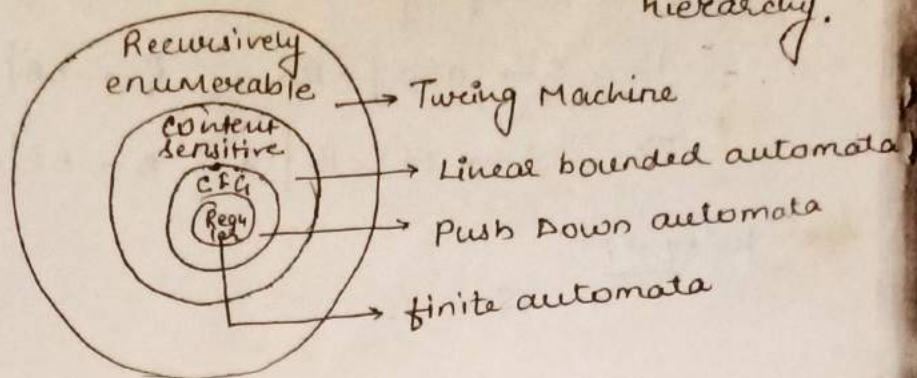 hierarchy.
Recursively
enumerable
Turing Machine
Content
sensitive
Linear bounded automata
CFG
Push Down automata
Regu
lar
finite automata